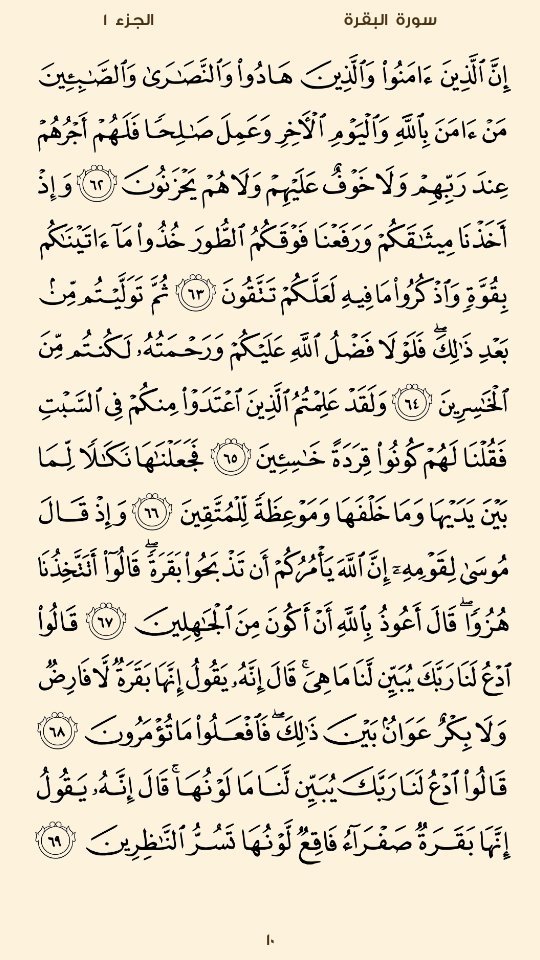 سورة البقرة
الجزء ١
إِنَّ ٱلَّذِينَ ءَامَنُوا۟ وَٱلَّذِينَ هَادُوا۟ وَٱلنَّصَٰرَىٰ وَٱلصَّٰبِـِٔينَ
مَنْ ءَامَنَ بِٱللَّهِ وَٱلْيَوْمِ ٱلْءَاخِرِ وَعَمِلَ صَٰلِحًا فَلَهُمْ أَجْرُهُمْ
عِندَ رَبِّهِمْ وَلَا خَوْفٌ عَلَيْهِمْ وَلَا هُمْ يَحْزَنُونَ ٦٢ وَإِذْ
أَخَذْنَا مِيثَٰقَكُمْ وَرَفَعْنَا فَوْقَكُمُ ٱلطُّورَ خُذُوا۟ مَآ ءَاتَيْنَٰكُم
بِقُوَّةٍ وَٱذْكُرُوا۟ مَا فِيهِ لَعَلَّكُمْ تَتَّقُونَ ٦٣ ثُمَّ تَوَلَّيْتُم مِّنۢ
بَعْدِ ذَٰلِكَ ۖ فَلَوْلَا فَضْلُ ٱللَّهِ عَلَيْكُمْ وَرَحْمَتُهُۥ لَكُنتُم مِّنَ
ٱلْخَٰسِرِينَ ٦٤ وَلَقَدْ عَلِمْتُمُ ٱلَّذِينَ ٱعْتَدَوْا۟ مِنكُمْ فِى ٱلسَّبْتِ
فَقُلْنَا لَهُمْ كُونُوا۟ قِرَدَةً خَٰسِـِٔينَ ٦٥ فَجَعَلْنَٰهَا نَكَٰلًا لِّمَا
بَيْنَ يَدَيْهَا وَمَا خَلْفَهَا وَمَوْعِظَةً لِّلْمُتَّقِينَ ٦٦ وَإِذْ قَالَ
مُوسَىٰ لِقَوْمِهِۦٓ إِنَّ ٱللَّهَ يَأْمُرُكُمْ أَن تَذْبَحُوا۟ بَقَرَةً ۖ قَالُوٓا۟ أَتَتَّخِذُنَا
هُزُوًا ۖ قَالَ أَعُوذُ بِٱللَّهِ أَنْ أَكُونَ مِنَ ٱلْجَٰهِلِينَ ٦٧ قَالُوا۟
ٱدْعُ لَنَا رَبَّكَ يُبَيِّن لَّنَا مَا هِىَ ۚ قَالَ إِنَّهُۥ يَقُولُ إِنَّهَا بَقَرَةٌ لَّا فَارِضٌ
وَلَا بِكْرٌ عَوَانٌۢ بَيْنَ ذَٰلِكَ ۖ فَٱفْعَلُوا۟ مَا تُؤْمَرُونَ ٦٨
قَالُوا۟ ٱدْعُ لَنَا رَبَّكَ يُبَيِّن لَّنَا مَا لَوْنُهَا ۚ قَالَ إِنَّهُۥ يَقُولُ
إِنَّهَا بَقَرَةٌ صَفْرَآءُ فَاقِعٌ لَّوْنُهَا تَسُرُّ ٱلنَّٰظِرِينَ ٦٩
١٠